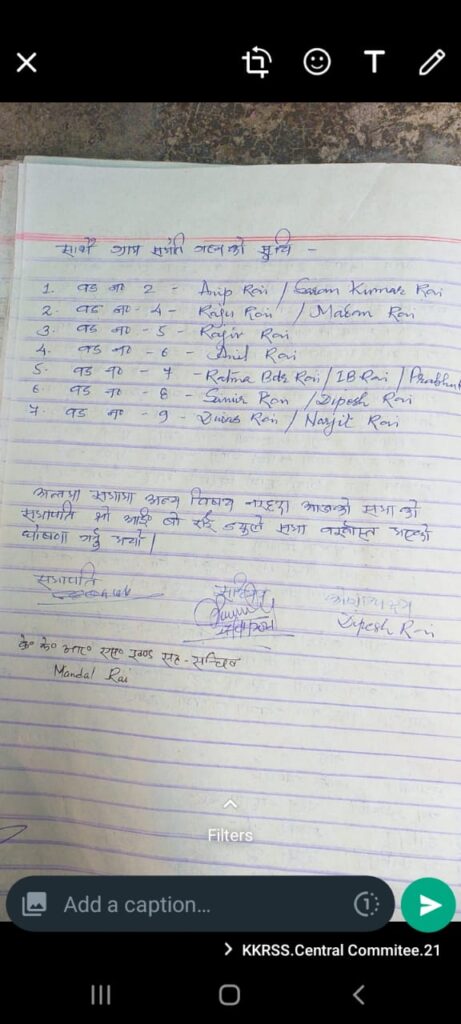 साथै ग्राम समिति गठनको सुचि -
1. वड नं 2 - Anip Rai / Sanam Kumar Rai
2. वड नं - 4 - Raju Rai / Madan Rai
3. वड नं - 5 - Rajir Rai
4. वड नं - 6 - Anil Rai
5. वड नं - 7 - Ratna Bdr Rai / IB Rai /
6. वड नं - 8 - Samir Rai / Dipesh Rai
7. वड नं - 9 - Rai / Narjit Rai
अन्तमा सभामा अन्य विषय नरहदा आजको सभा को
सभापति श्री आई बी राई ज्यूले सभा भएको
घोषणा गर्नु भयो।
सभापति
सचिव
कोषाध्यक्ष
Dipesh Rai
के० के० आर० एस० एस० सह-सचिव
Mandal Rai
Filters
Add a caption...
1
KKRSS.Central Commitee.21